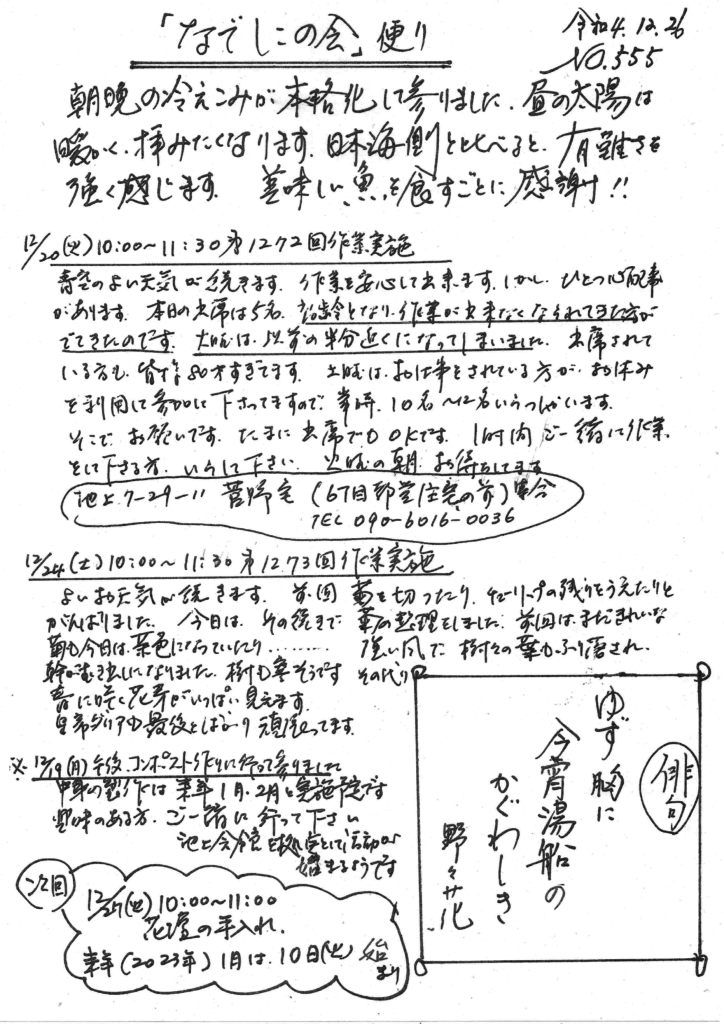 「なでしこの会」便り
令和4.12.26
NO.555
朝晩の冷えこみが本格化して参りました。昼の太陽は
暖かく、拝みたくなります。日本海側と比べると、有難さを
強く感じます。美味しい魚を食すごとに感謝!!
12/20(火)10:00~11:30第1272回作業実施
青空のよい天気が続きます。作業を安心して出来ます。しかし、ひとつ心配事
があります。本日の出席は5名、高齢となり、作業が出来なくなられてきた方が
でてきたのです。火曜は、以前の半分近くになってしまいました。出席されて
いる方も、皆様80才すぎてます。土曜は、お仕事をされている方が、お休み
を利用して参加して下さってますので、常時、10名~12名いらっしゃいます。
そこで、お願いです。たまに出席でもOKです。1時間ご一緒に作業
をして下さる方、いらして下さい。火曜の朝、お待ちしてます
池上7-29-11 菅野宅(6丁目都営住宅の前)集合
TEL 090-6016-0036
12/24(土)10:00~11:30第1273回作業実施
よいお天気が続きます。前回菊を切ったり、チューリップの残りをうえたりと
がんばりました。今日は、その続きで葉の整理をしました。前回はまだきれいな
菊も今日は茶色になっていたり………強い風で、樹々の葉もふり落され、
幹がむき出しになりました。樹も寒そうです その代り
春に咲く花芽がいっぱい見えます。
皇帝ダリアも最後とばかり頑張ってます。
※12/19(月)午後、コンポスト作りに行って参りました
中身の製作は来年1月、2月と実施予定です
興味のある方、ご一緒に行って下さい
池上会館を拠点として活動が
始まるようです
俳句
ゆず胸に
今宵湯船の
かぐわしき
野々花
次回
12/27(火)10:00~11:00
花壇の手入れ
来年(2023年)1月は、10日(火)始まり